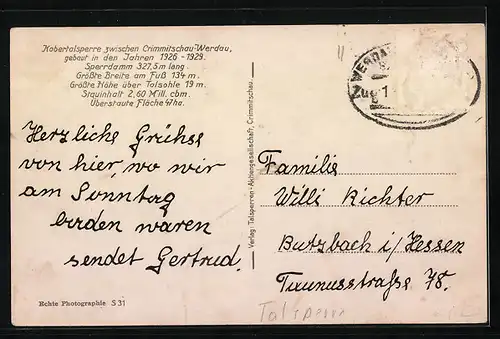 Kobertalsperre zwischen Crimmitschau-Werdau,
gebaut in den Jahren 1926-1929.
Sperrdamm 327,5 m lang.
Größte Breite am Fuß 134 m.
Größte Höhe über Talsohle 19 m.
Stauinhalt 2,60 Mill. cbm.
Überstaute Fläche 47 ha.
Herzliche Grüße
von hier, wo wir
am Sonntag
baden waren
sendet Gertrud.
Echte Photographie S 31
Verlag: Talsperren-Aktiengesellschaft, Crimmitschau
WERDAU
Zug 1
Familie
Willi Richter
Butzbach i/Hessen
Taunusstraße 78.
Talsperre